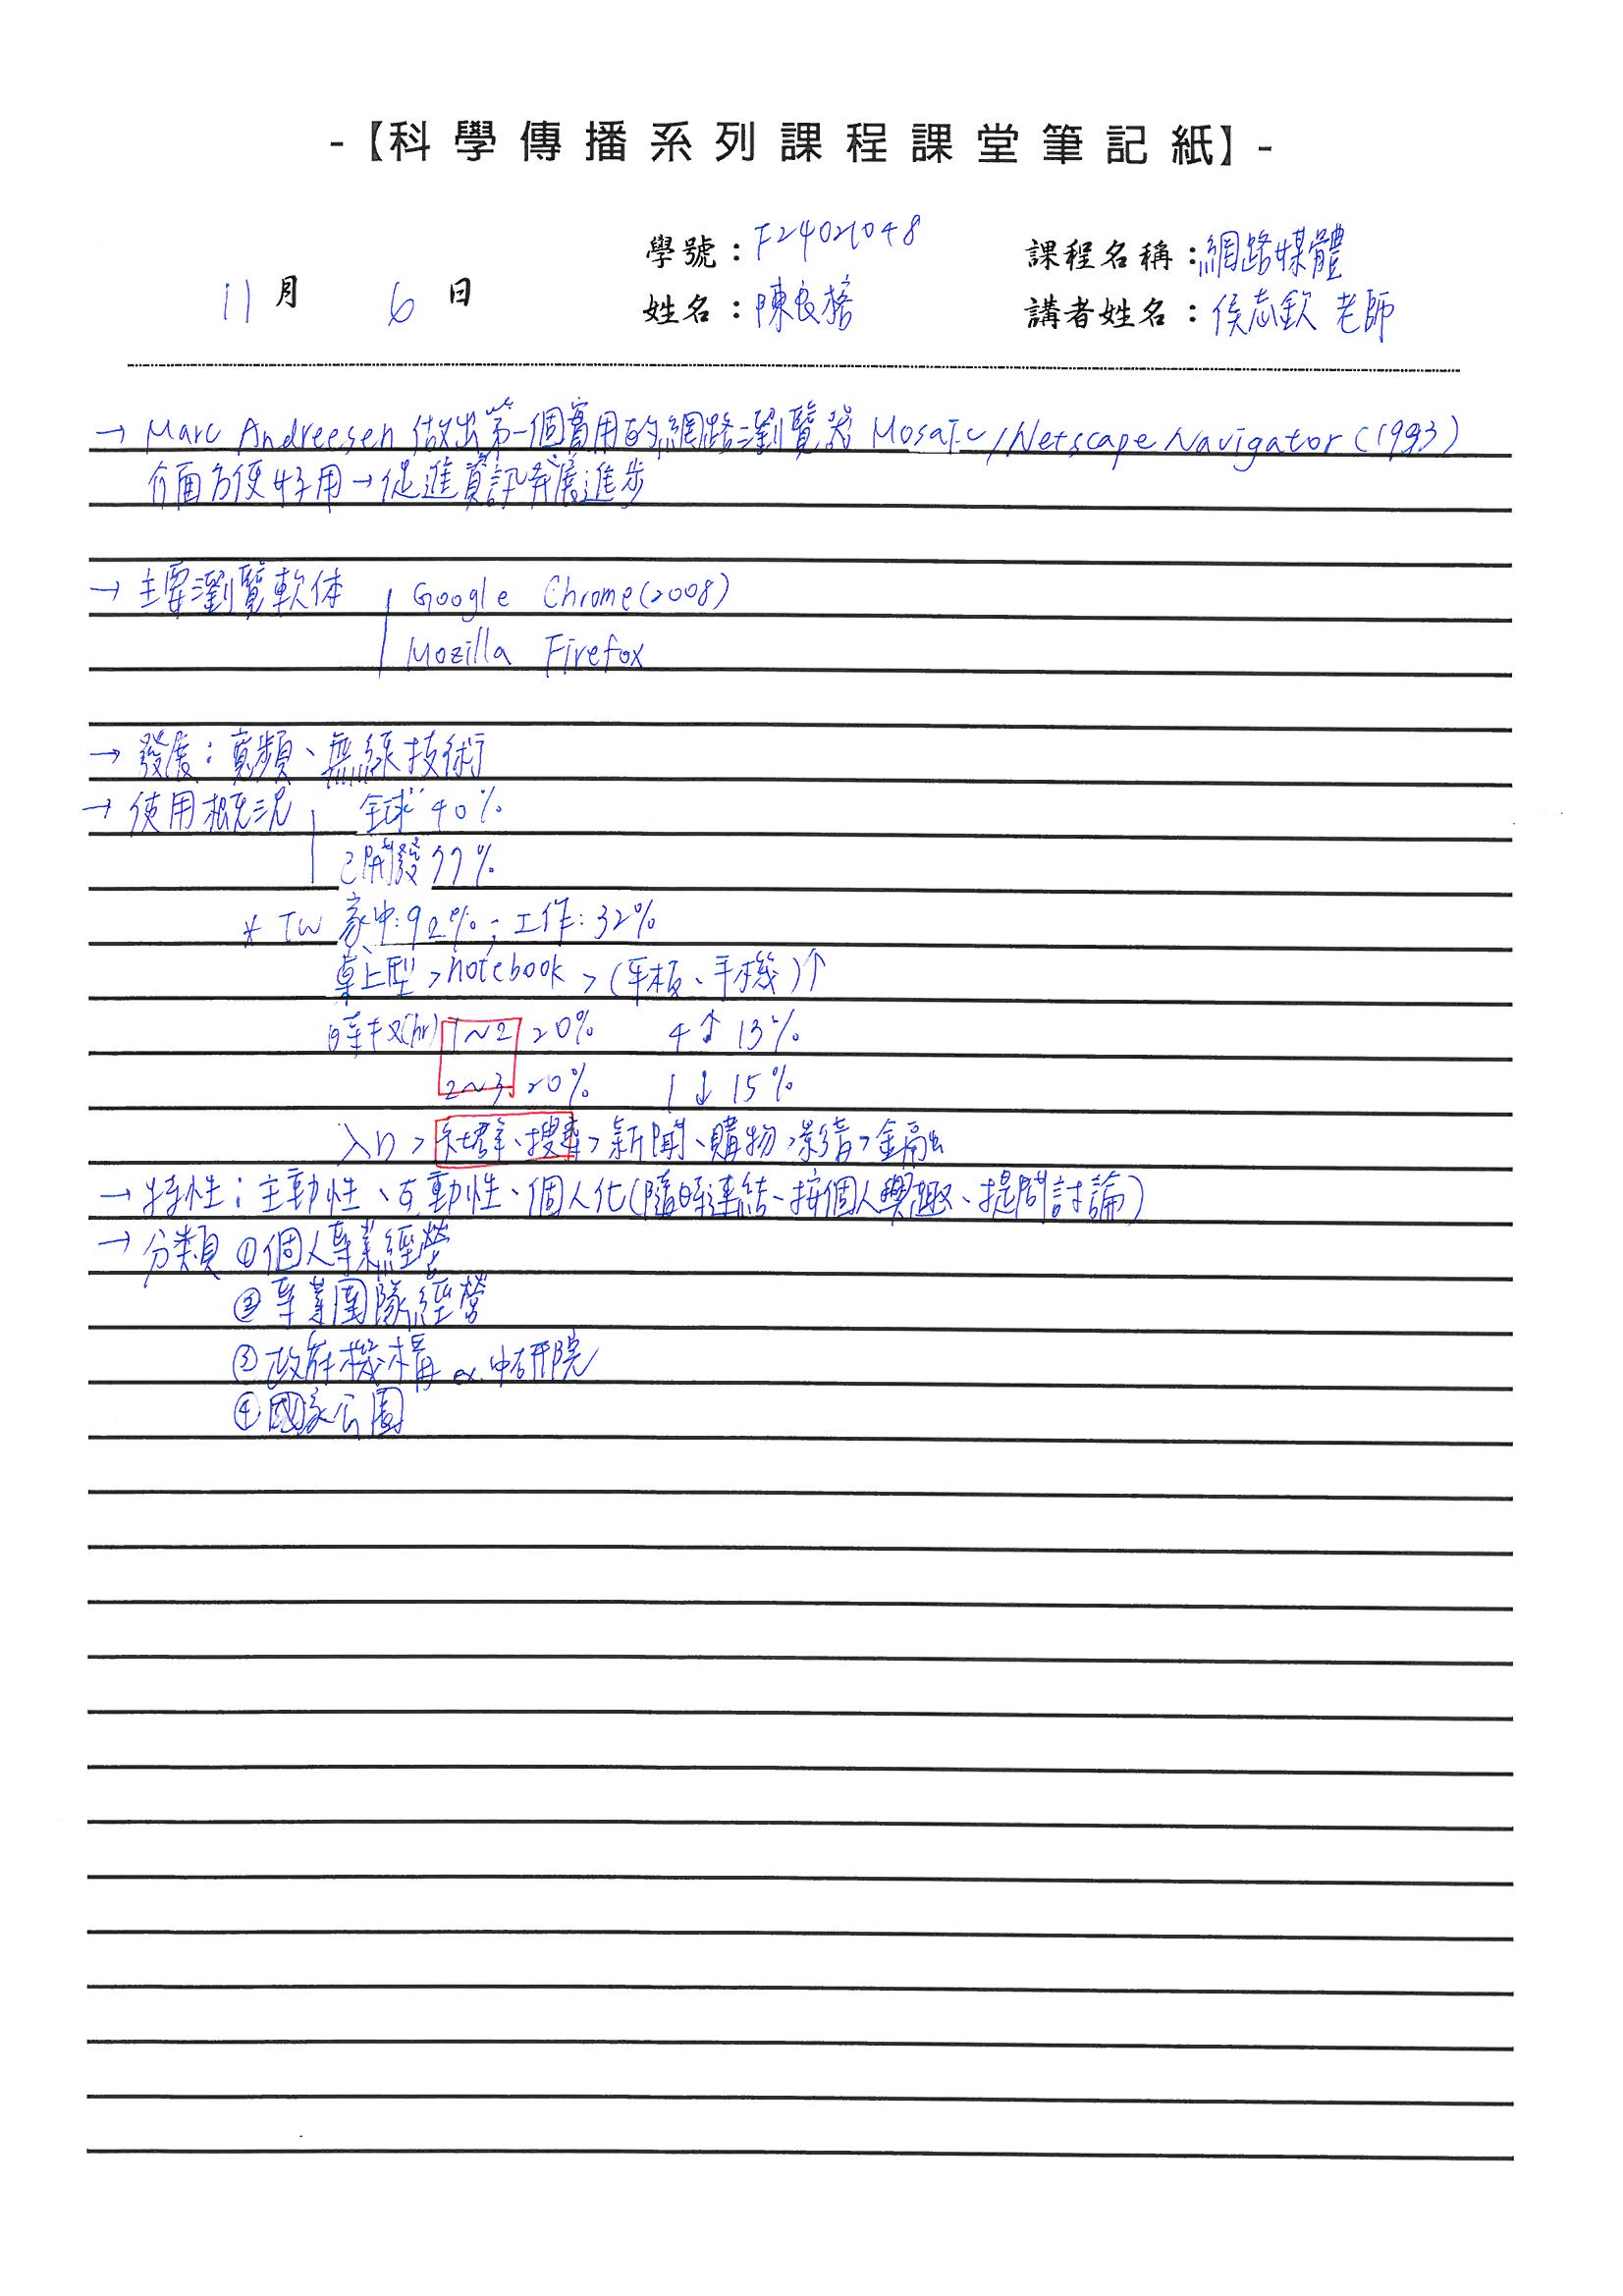 -【科學傳播系列課程課堂筆記紙】-
學號：F24021048 課程名稱：網路媒體
11月 6日 姓名：陳良榕 講者姓名：侯志欽 老師
→ Marc Andreesen 做出第一個實用的網路瀏覽器 Mosaic/Netscape Navigator (1993)
介面方便好用→促進資訊發展進步
→ 主要瀏覽軟体 Google Chrome (2008)
Mozilla Firefox
→ 發展：寬頻、無線技術
→ 使用概況 全球 40%
已開發 77%
* TW 家中: 92% ; 工作: 32%
桌上型 > notebook > (平板、手機)↑
時數(hr) 1~2 20% 4↑ 13%
2~3 20% 1↓ 15%
入口 > 社群、搜尋 > 新聞、購物 > 影音 > 金融
→ 特性：主動性、互動性、個人化(隨時連結、按個人興趣、提問討論)
→ 分類 ①個人專業經營
②專業團隊經營
③政府機構 ex.中研院
④國家公園